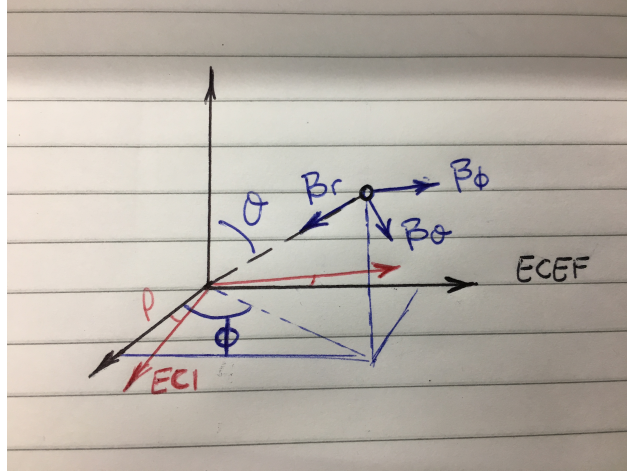 θ
βr
βϕ
βθ
ECEF
ρ
ϕ
ECI